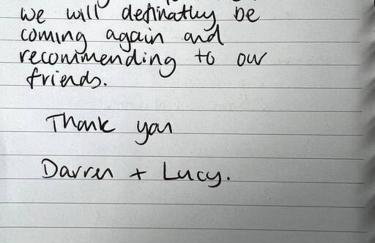 we will definatley be
coming again and
recommending to our
friends.
Thank you
Darren + Lucy.